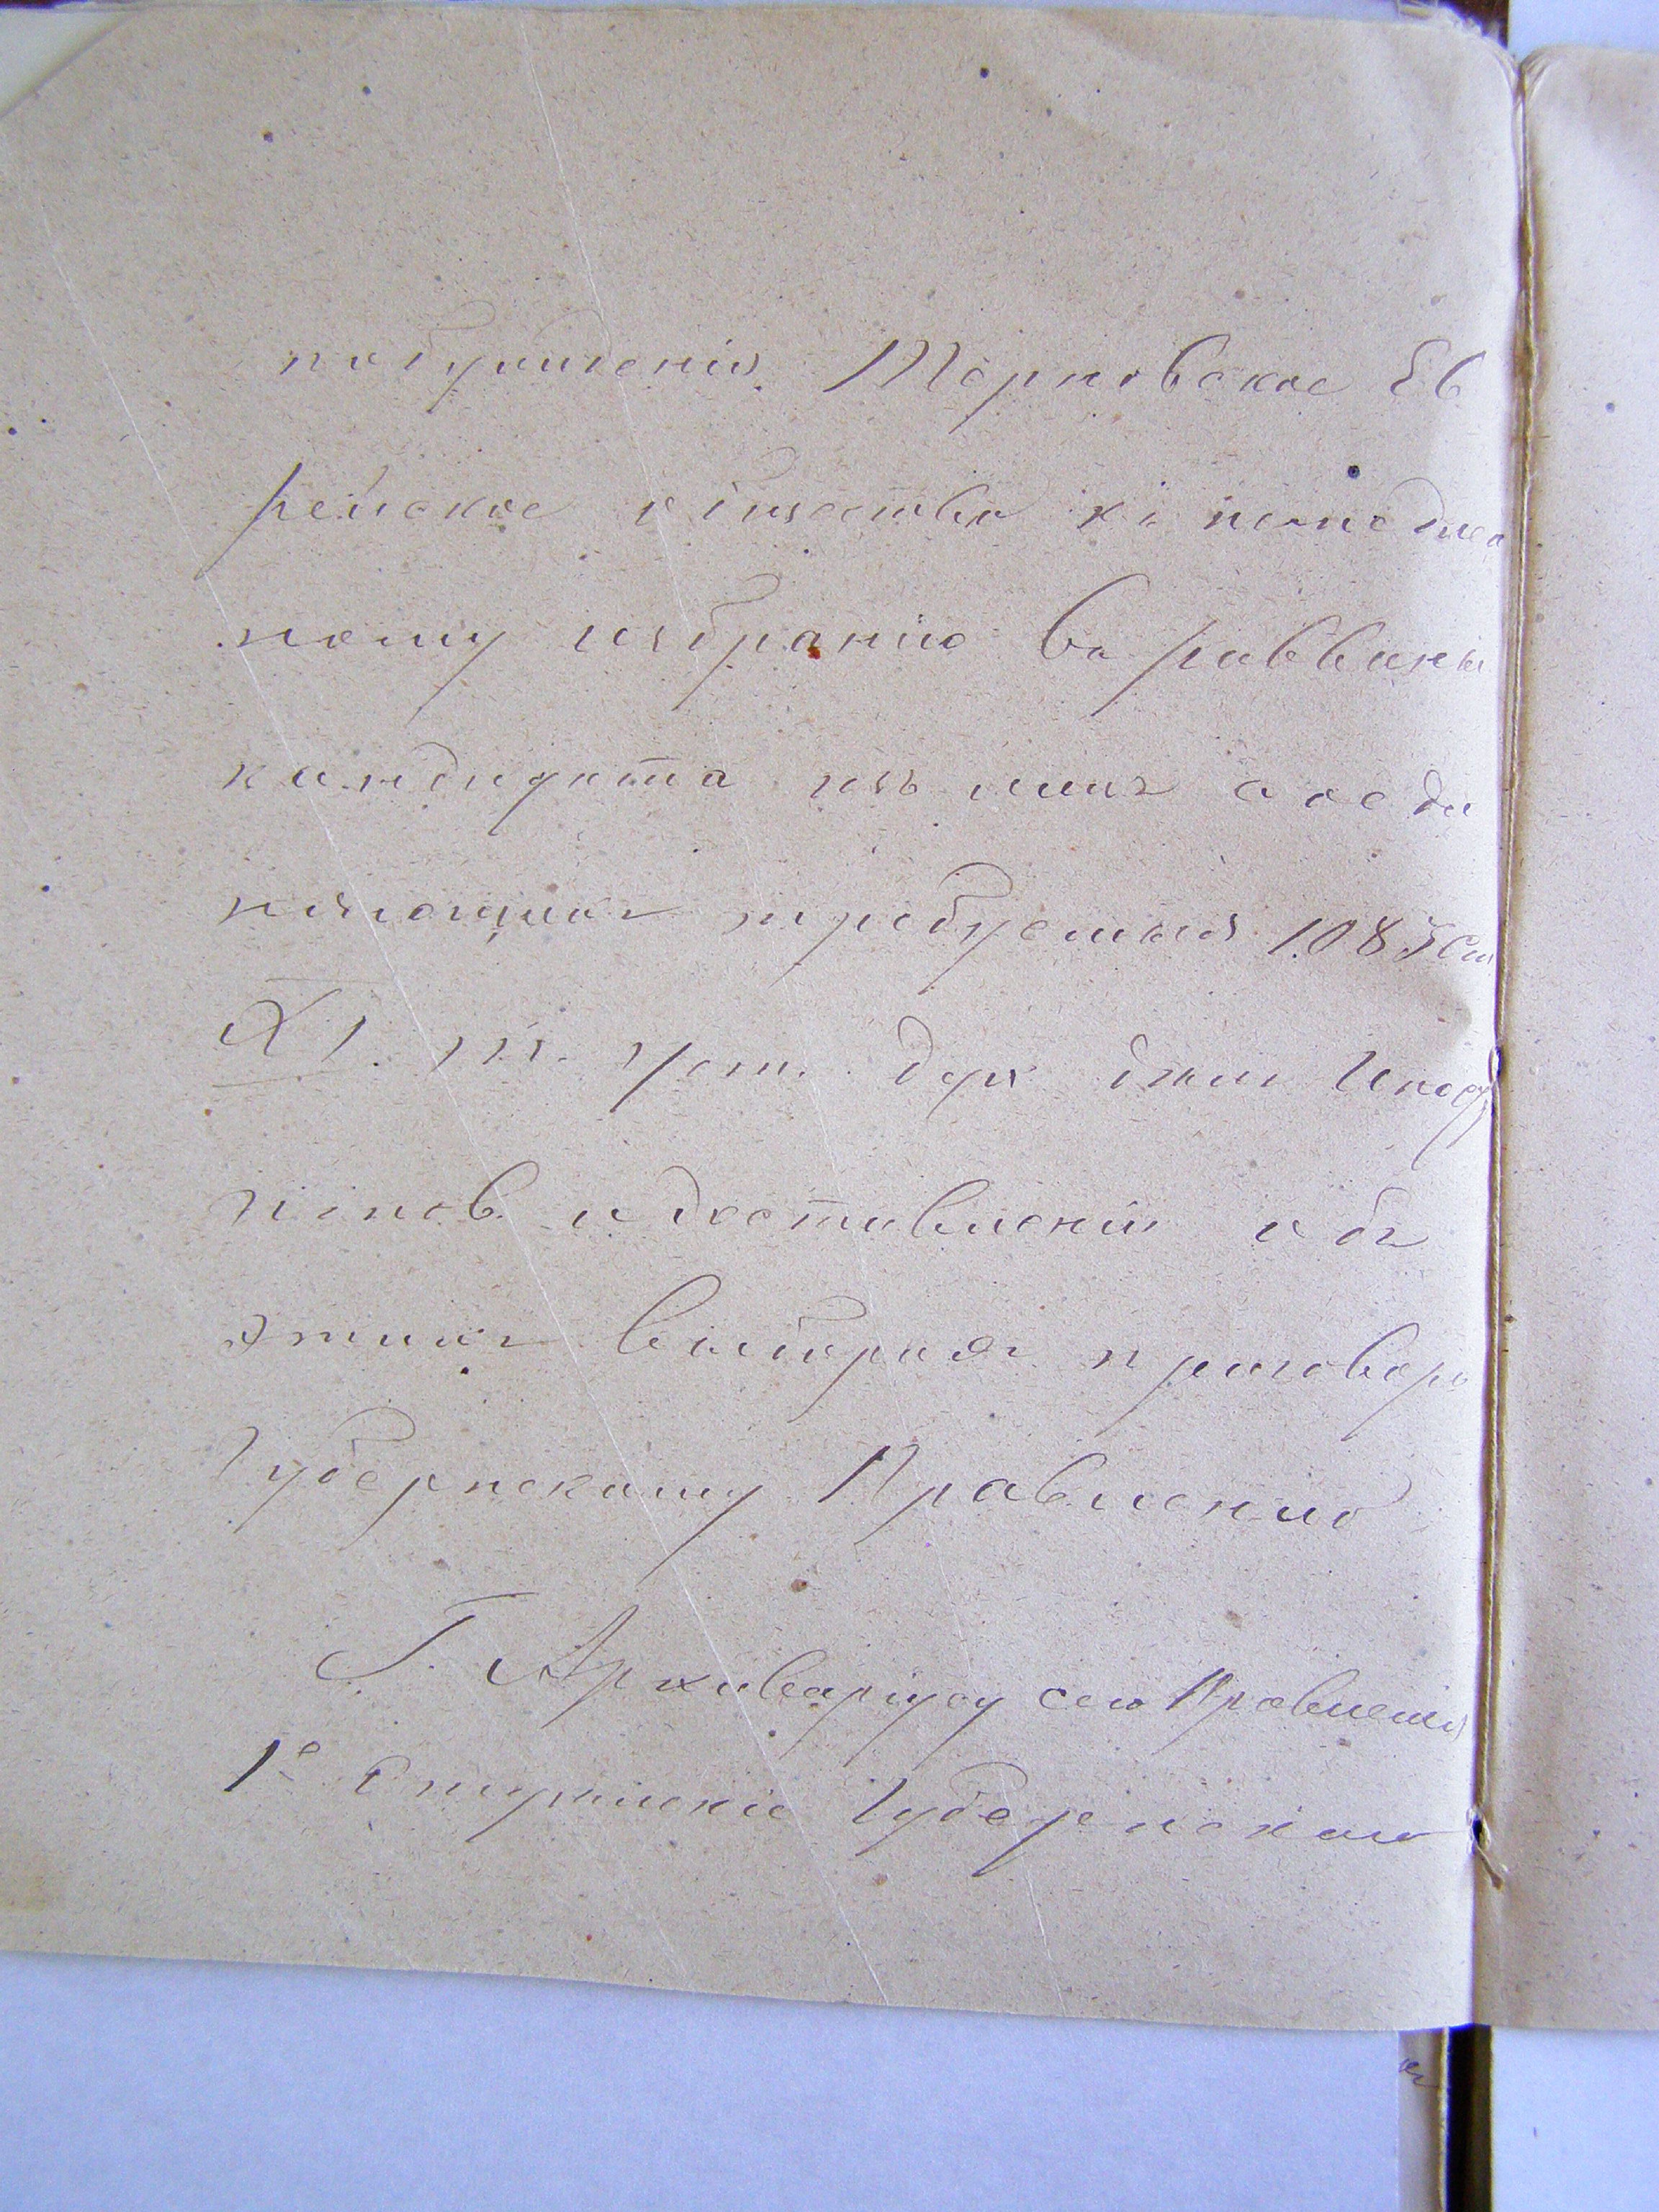 побужденія Терновское Ев
рейское общество къ немедлен
ному избранію въ раввины
кандидата изъ лицъ соеди
няющихъ требуемыя 1083 ст
XI. т. Уст. дух дѣлъ Иностр
и доставленіи объ
этихъ выборахъ приговора
Губернскому Правленію
Г. Архиваріусу сего Правленія
1е Отдѣленіе Губернскаго